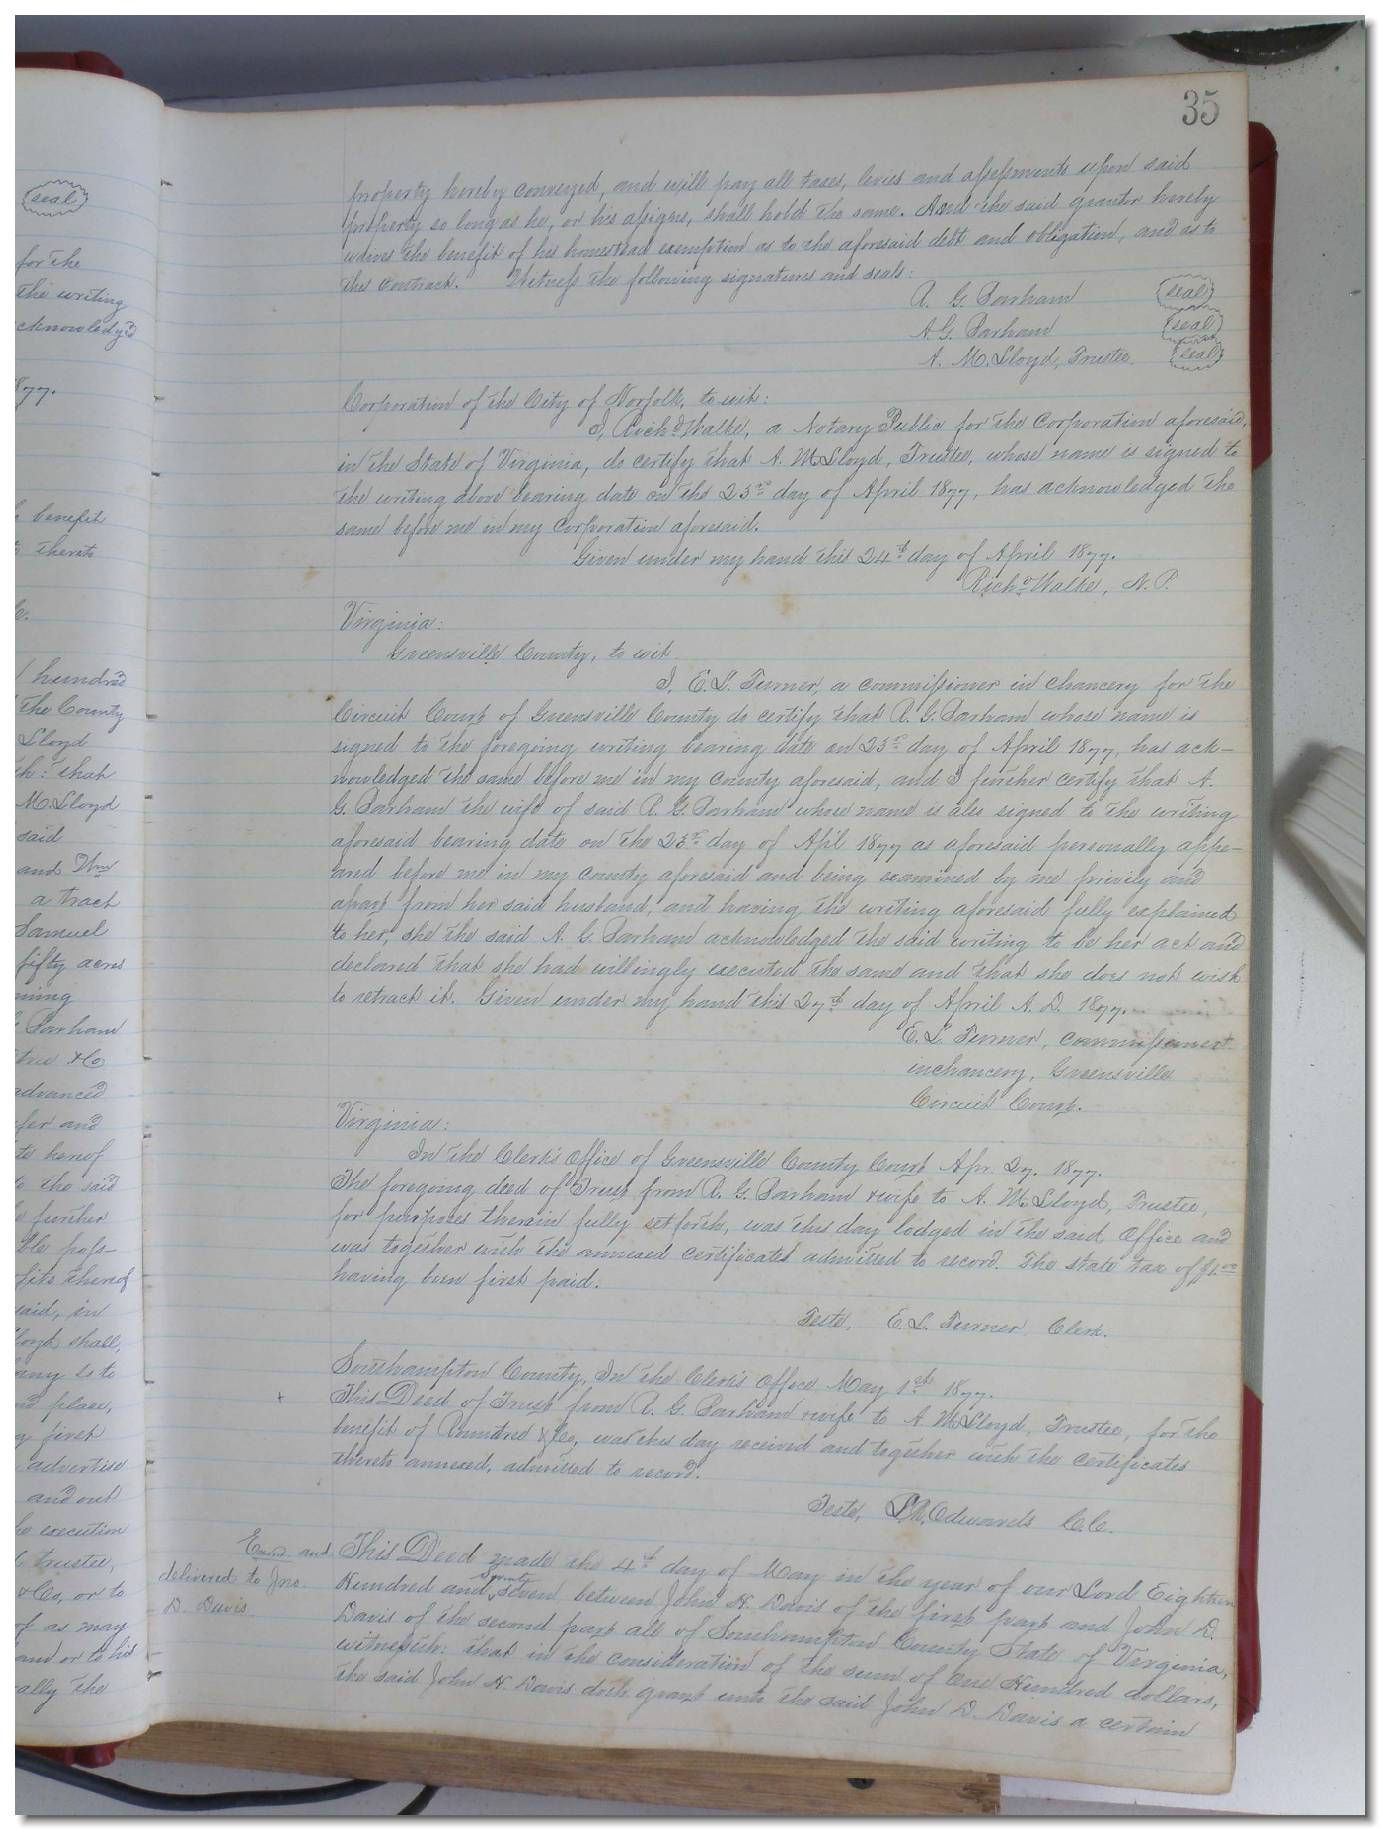 35
property hereby conveyed, and will pay all taxes, levies and assessments upon said
property so long as he, or his assigns, shall hold the same. And the said grantor hereby
waives the benefit of his homestead exemption as to the aforesaid debt and obligation, and as to
this contract. Witness the following signatures and seals:
R. G. Parham (seal)
A. G. Parham (seal)
A. M. Lloyd, Trustee. (seal)
Corporation of the City of Norfolk, to wit:
I, Richd Walke, a Notary Public for the Corporation aforesaid,
in the State of Virginia, do certify that A. M. Lloyd, Trustee, whose name is signed to
the writing above bearing date on the 23rd day of April 1877, has acknowledged the
same before me in my Corporation aforesaid.
Given under my hand this 24th day of April 1877.
Richd Walke, N. P.
Virginia:
Greensville County, to wit
I, E. L. Turner, a commissioner in chancery for the
Circuit Court of Greensville County do certify that R. G. Parham whose name is
signed to the foregoing writing bearing date on 23rd day of April 1877, has ack-
nowledged the same before me in my county aforesaid, and I further certify that A.
G. Parham the wife of said R. G. Parham whose name is also signed to the writing
aforesaid bearing date on the 23rd day of Apl 1877 as aforesaid personally appe-
ared before me in my county aforesaid and being examined by me privily and
apart from her said husband, and having the writing aforesaid fully explained
to her, she the said A. G. Parham acknowledged the said writing to be her act and
declared that she had willingly executed the same and that she does not wish
to retract it. Given under my hand this 27th day of April A. D. 1877.
E. L. Turner, commissioner
in chancery, Greensville
Circuit Court.
Virginia:
In the Clerk's Office of Greensville County Court Apr. 27. 1877.
The foregoing deed of Trust from R. G. Parham & wife to A. M. Lloyd, Trustee,
for purposes therein fully set forth, was this day lodged in the said Office and
was together with the annexed certificates admitted to record. The state tax of $1.00
having been first paid.
Teste, E. L. Turner, Clerk.
Southampton County, In the Clerk's Office May 1st 1877.
This Deed of Trust from R. G. Parham & wife to A. M. Lloyd, Trustee, for the
benefit of & Co, was this day received and together with the certificates
thereto annexed, admitted to record.
Teste, L. R. Edwards C. C.
Examd and
delivered to Jno.
D. Davis
This Deed made the 4th day of May in the year of our Lord Eighteen
Hundred and Seventy seven, between John H. Davis of the first part and John D.
Davis of the second part all of Southampton County State of Virginia,
witnesseth: that in the consideration of the sum of One Hundred dollars,
the said John H. Davis doth grant unto the said John D. Davis a certain
(seal)
for the
the writing
cknowledged
1877.
benefit
thereto
hundred
the County
Lloyd
th: that
M. Lloyd
said
and Wm
a tract
Samuel
fifty acres
Parham
& Co
advanced
fer and
te hereof
to the said
further
ble poss-
fits thereof
said, in
Lloyd shall,
any to to
place,
first
advertise
and out
execution
trustee,
& Co, or to
of as may
and or to his
ally the